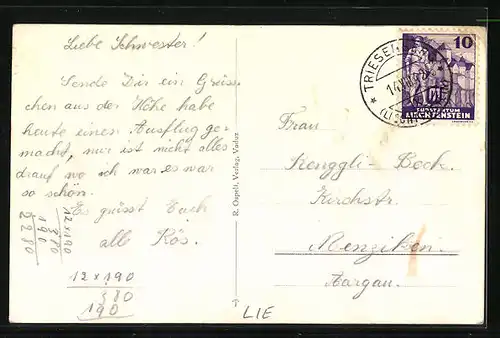 Liebe Schwester!
Sende Dir ein Grüss-
chen aus der Höhe habe
heute einen Ausflug ge-
macht, nur ist nicht alles
drauf wo ich war es war
so schön.
Es grüsst Euch
alle Rös.
12 x 190
380
190
2280
12 x 190
380
190
R. Ospelt, Verlag, Vaduz
LIE
TRIESEN
10
FÜRSTENTUM
LIECHTENSTEIN
Frau
Renggli-Beck.
Kirchstr.
Menziken.
Aargau.